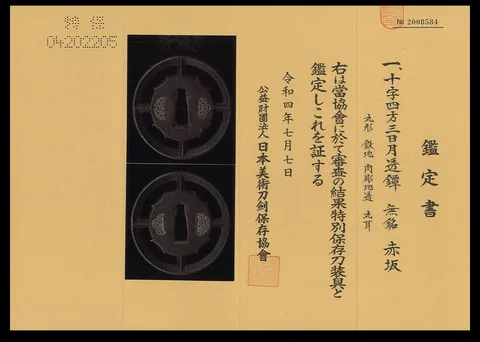 № 2008584
鑑定書
一、十字四方三日月透鐔 無銘 赤坂
丸形 鉄地 肉彫地透 丸耳
右は當協會に於て審査の結果特別保存刀装具と
鑑定しこれを証する
令和四年七月七日
公益財團法人 日本美術刀剣保存協會
特保
04202205